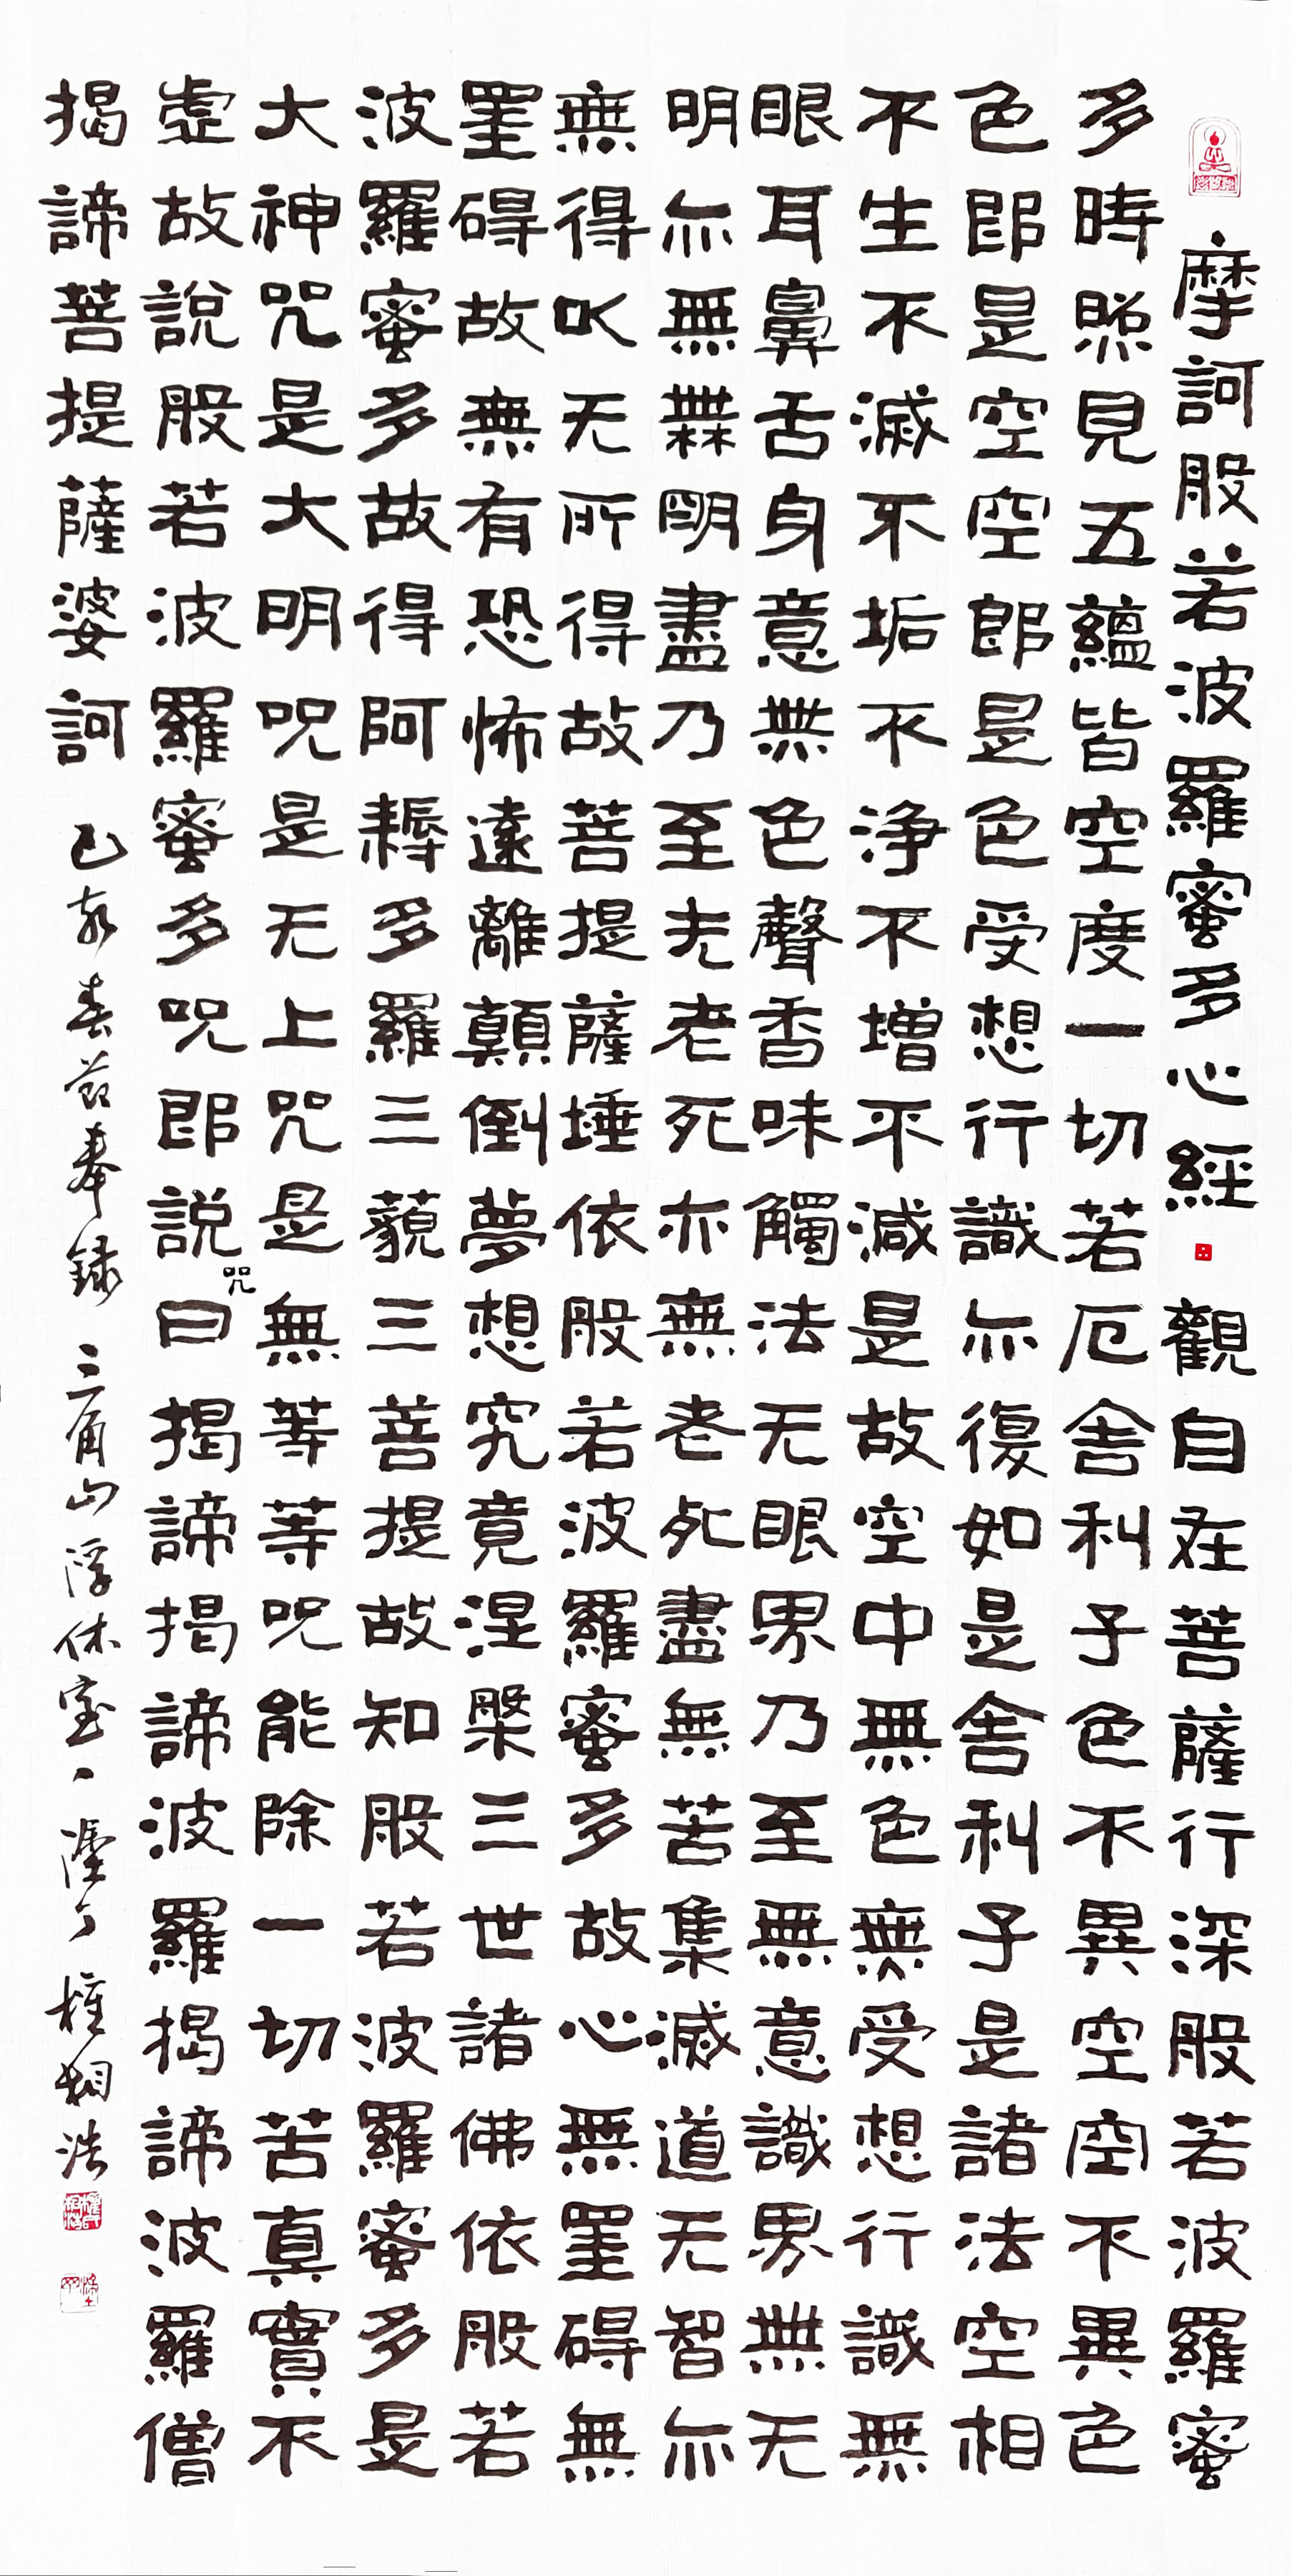 摩訶般若波羅蜜多心經 觀自在菩薩行深般若波羅蜜
多時照見五蘊皆空度一切若厄舍利子色不異空空不異色
色卽是空空郎是色受想行識亦復如是舍利子是諸法空相
不生不滅不垢不淨不增不減是故空中無色無受想行識無
眼耳鼻舌身意無色聲香味觸法无眼界乃至無意識界無无
明亦無無明盡乃至无老死亦無老死盡無苦集滅道无智亦
無得以无所得故菩提薩埵依般若波羅蜜多故心無罣碍無
罣碍故無有恐怖遠離顛倒夢想究竟涅槃三世諸佛依般若
波羅蜜多故得阿耨多羅三藐三菩提故知般若波羅蜜多是
大神咒是大明呪是无上咒是無等等呪能除一切苦真實不
虛故說般若波羅蜜多呪卽說咒曰揭諦揭諦波羅揭諦波羅僧
揭諦菩提薩婆訶 己亥春 奉錄 三角山浮休室 權相浩